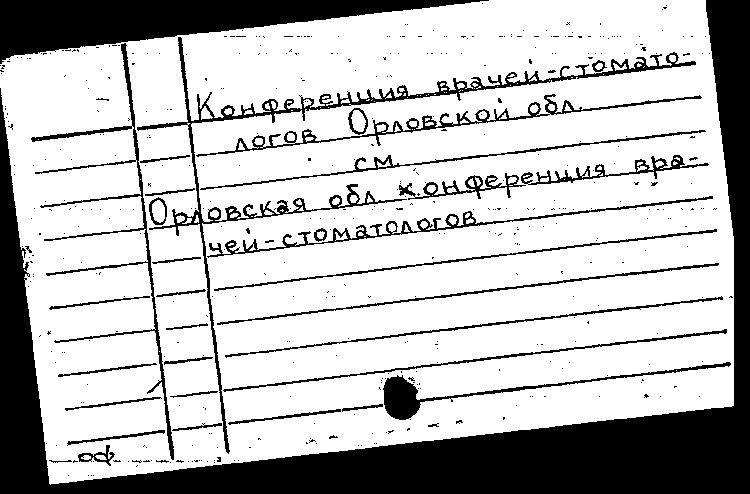 Конференция врачей-стомато-
логов Орловской обл.
см.
Орловская обл. конференция вра-
чей-стоматологов
оф